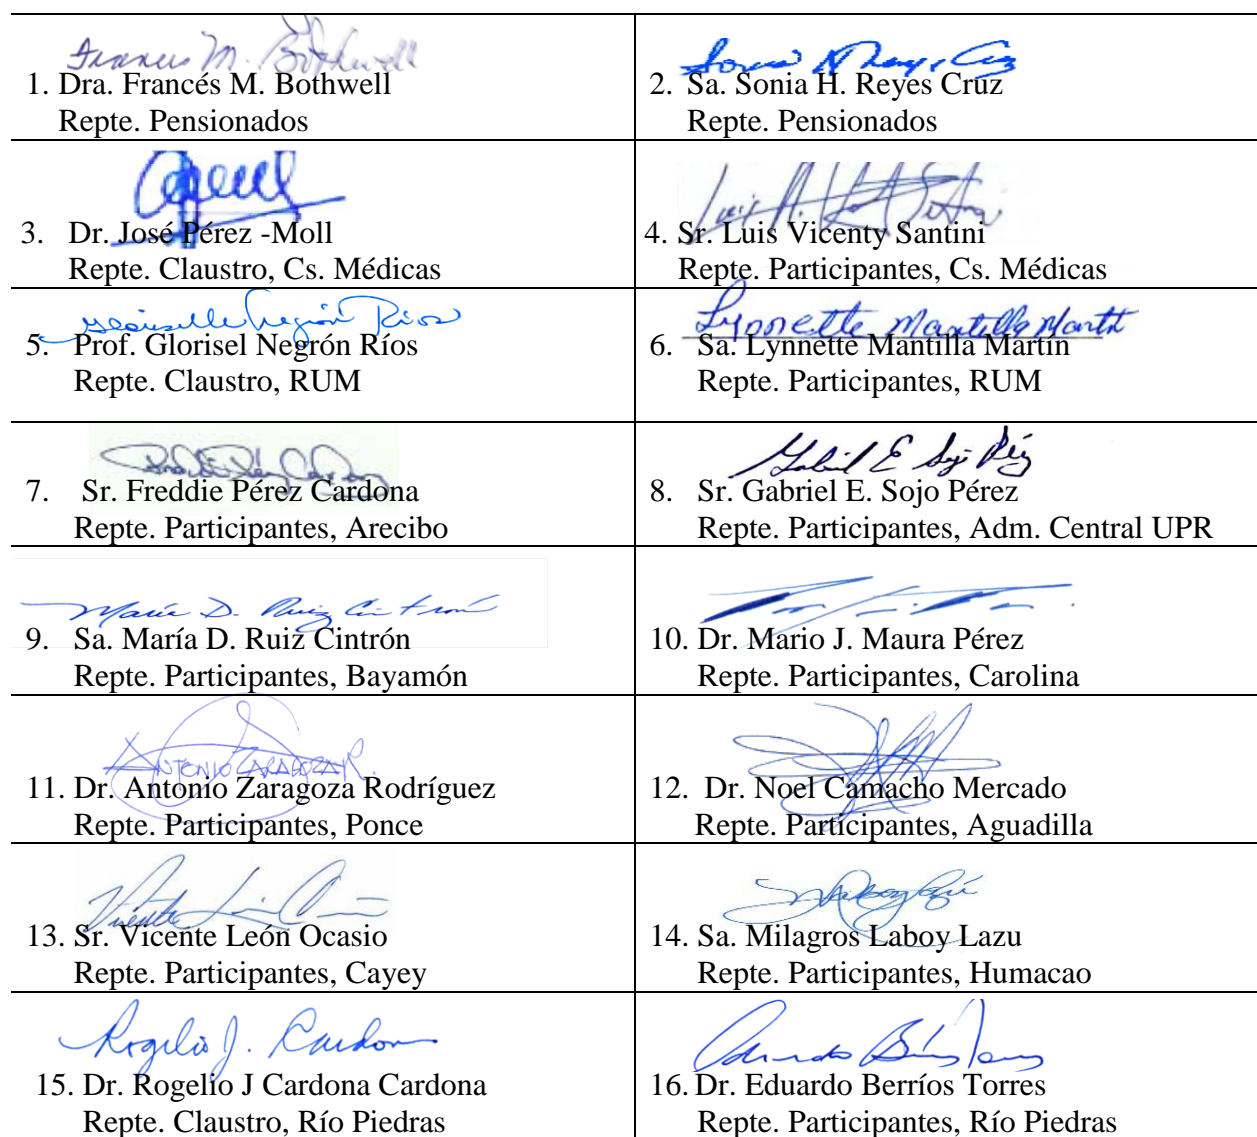 Frances M. Bothwell
1. Dra. Francés M. Bothwell
Repte. Pensionados
2. Sa. Sonia H. Reyes Cruz
Repte. Pensionados
3. Dr. José Pérez -Moll
Repte. Claustro, Cs. Médicas
4. Sr. Luis Vicenty Santini
Repte. Participantes, Cs. Médicas
Negrón Ríos
5. Prof. Glorisel Negrón Ríos
Repte. Claustro, RUM
Lynnette Mantilla Martí
6. Sa. Lynnette Mantilla Martín
Repte. Participantes, RUM
7. Sr. Freddie Pérez Cardona
Repte. Participantes, Arecibo
Gabriel E Sojo Pérez
8. Sr. Gabriel E. Sojo Pérez
Repte. Participantes, Adm. Central UPR
María D. Ruiz Cintrón
9. Sa. María D. Ruiz Cintrón
Repte. Participantes, Bayamón
10. Dr. Mario J. Maura Pérez
Repte. Participantes, Carolina
ANTONIO ZARAGOZA R.
11. Dr. Antonio Zaragoza Rodríguez
Repte. Participantes, Ponce
12. Dr. Noel Camacho Mercado
Repte. Participantes, Aguadilla
Vicente
13. Sr. Vicente León Ocasio
Repte. Participantes, Cayey
14. Sa. Milagros Laboy Lazu
Repte. Participantes, Humacao
Rogelio J. Cardona
15. Dr. Rogelio J Cardona Cardona
Repte. Claustro, Río Piedras
16. Dr. Eduardo Berríos Torres
Repte. Participantes, Río Piedras